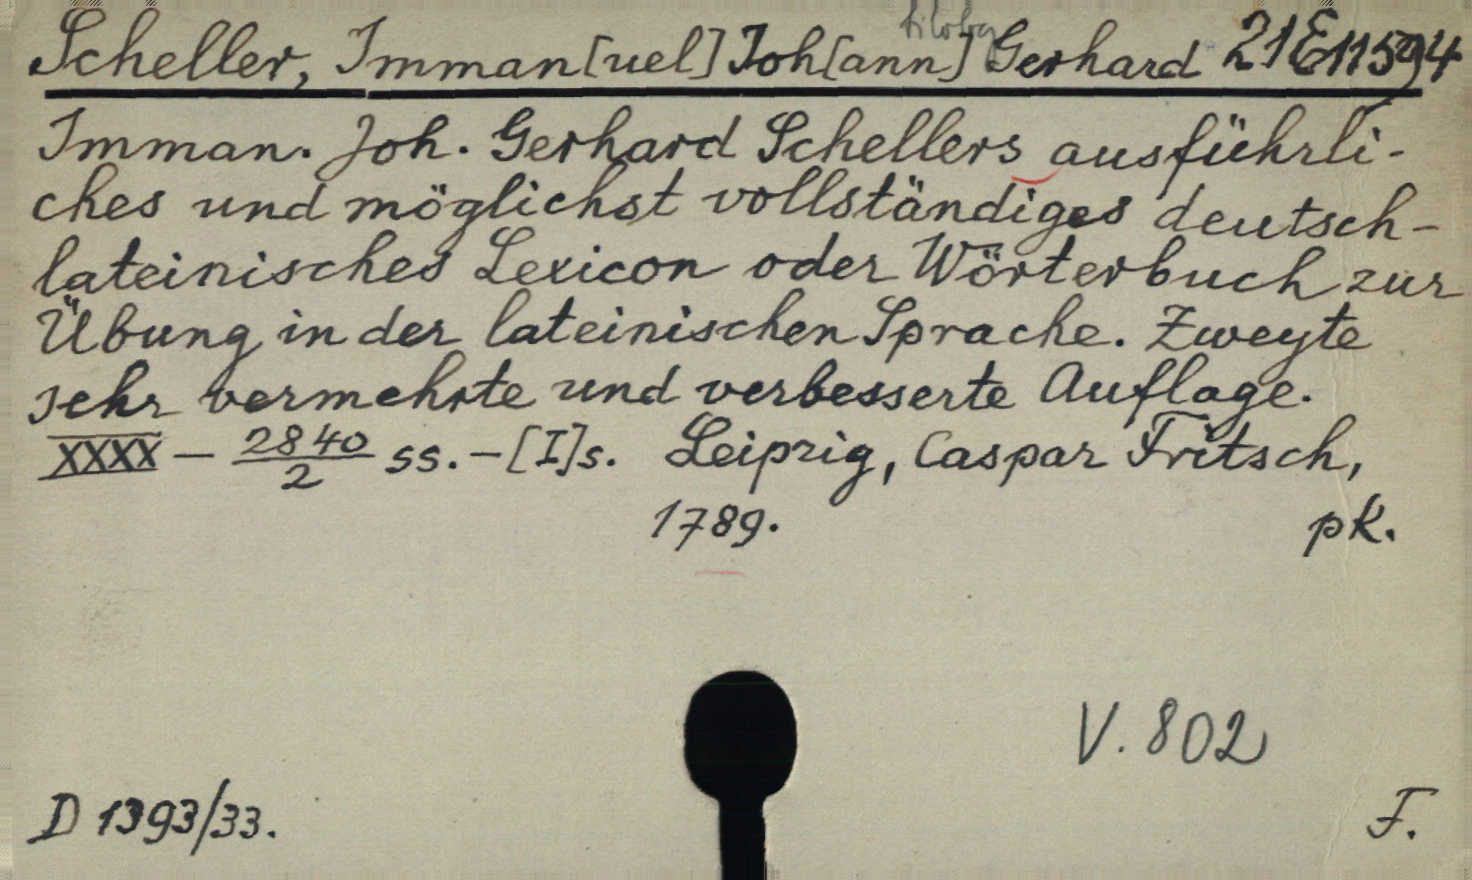 filolog
Scheller, Imman[uel] Joh[ann] Gerhard 21E11594
Imman. Joh. Gerhard Schellers ausführli-
ches und möglichst vollständiges deutsch-
lateinisches Lexicon oder Wörterbuch zur
Übung in der lateinischen Sprache. Zweyte
sehr vermehrte und verbesserte Auflage.
XXXX – 2840/2 ss. – [I]s. Leipzig, Caspar Fritsch,
1789. pk.
V. 802
D 1393/33. F.